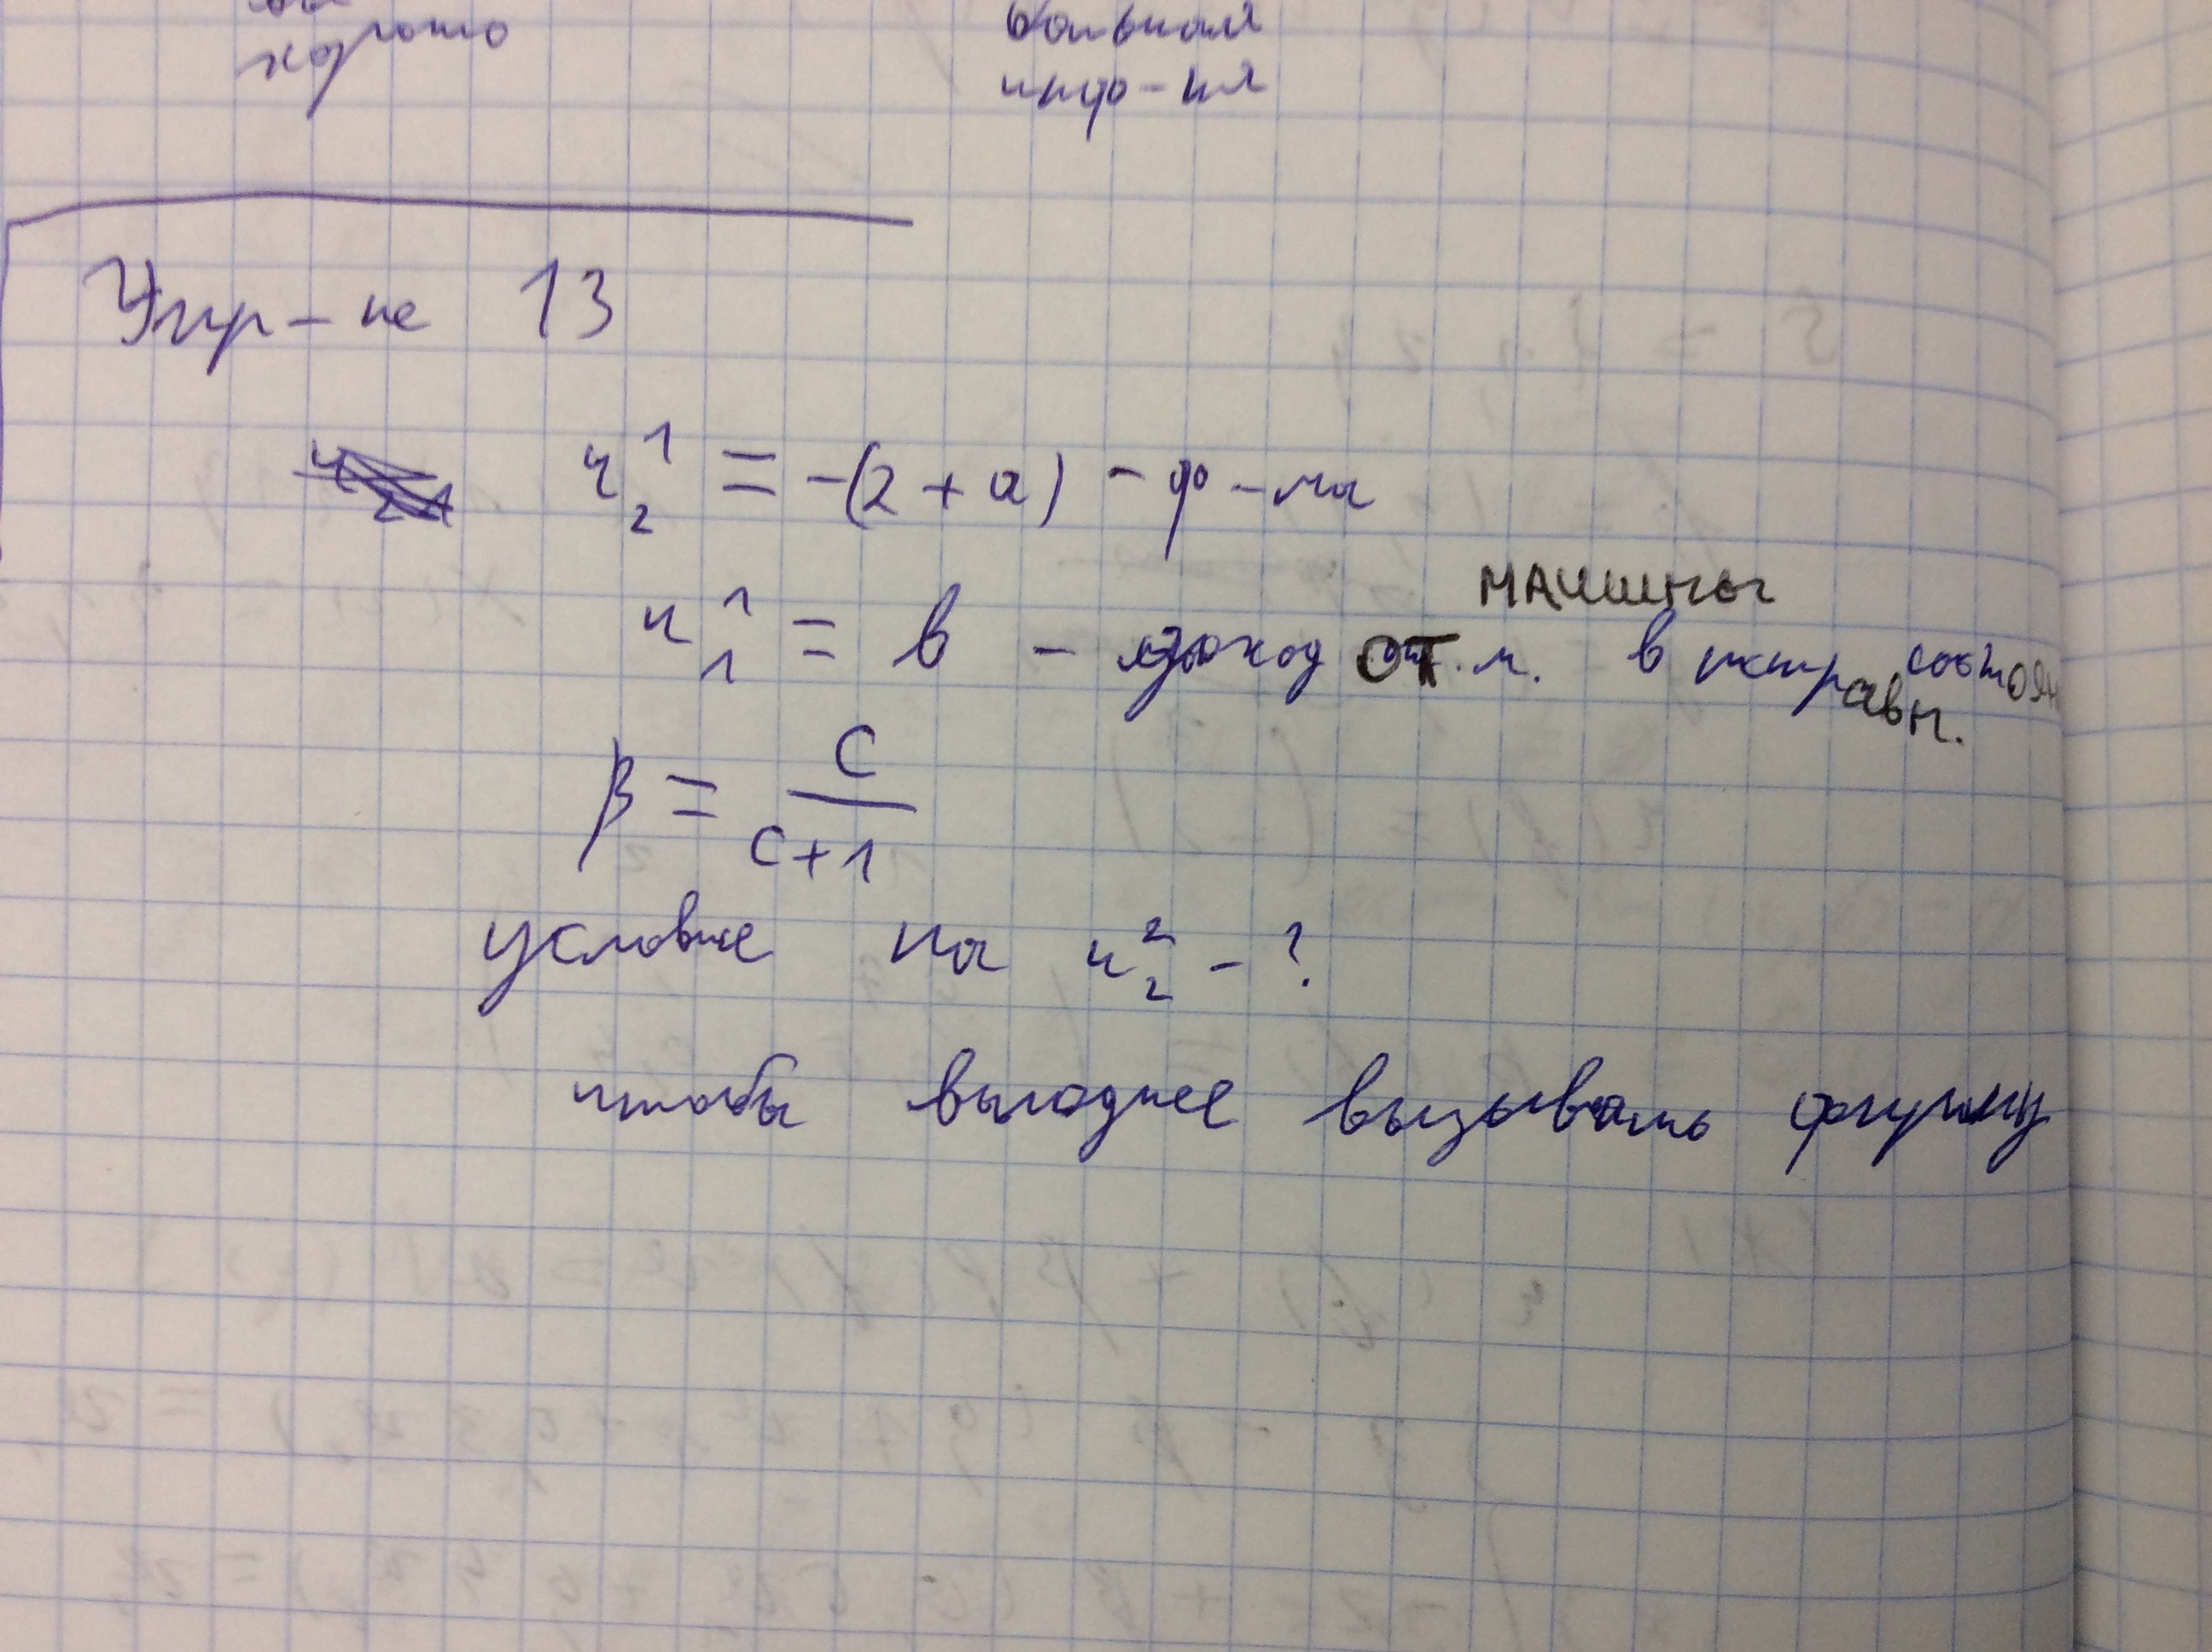 хорошо
большая
инфо-ия
Упр-не 13
ч₂¹ = -(2 + a) - ф-ма
МАШИНЫ
ч₁¹ = в - доход от м. в исправн. состоян
β = c/(c+1)
условие на ч₂² - ?
чтобы выгоднее вызывать фирму